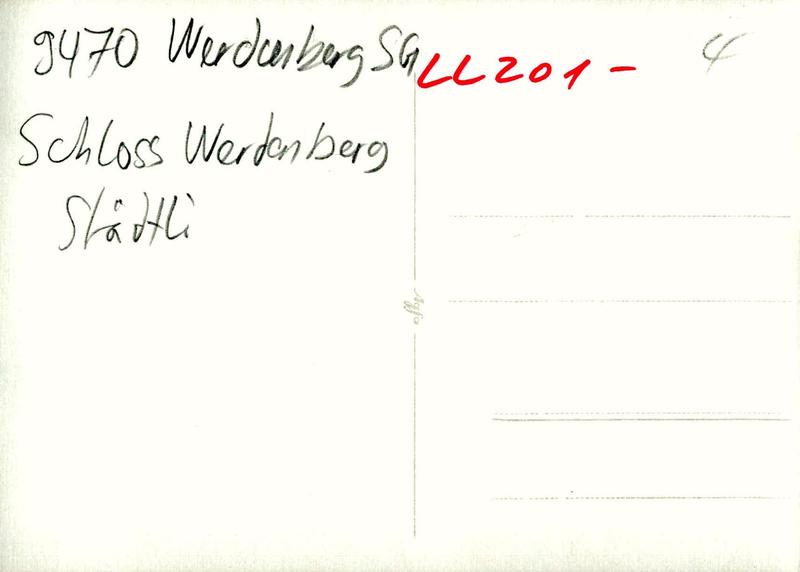 9470 Werdenberg SG LL201- 4
Schloss Werdenberg
Städtli
Agfa